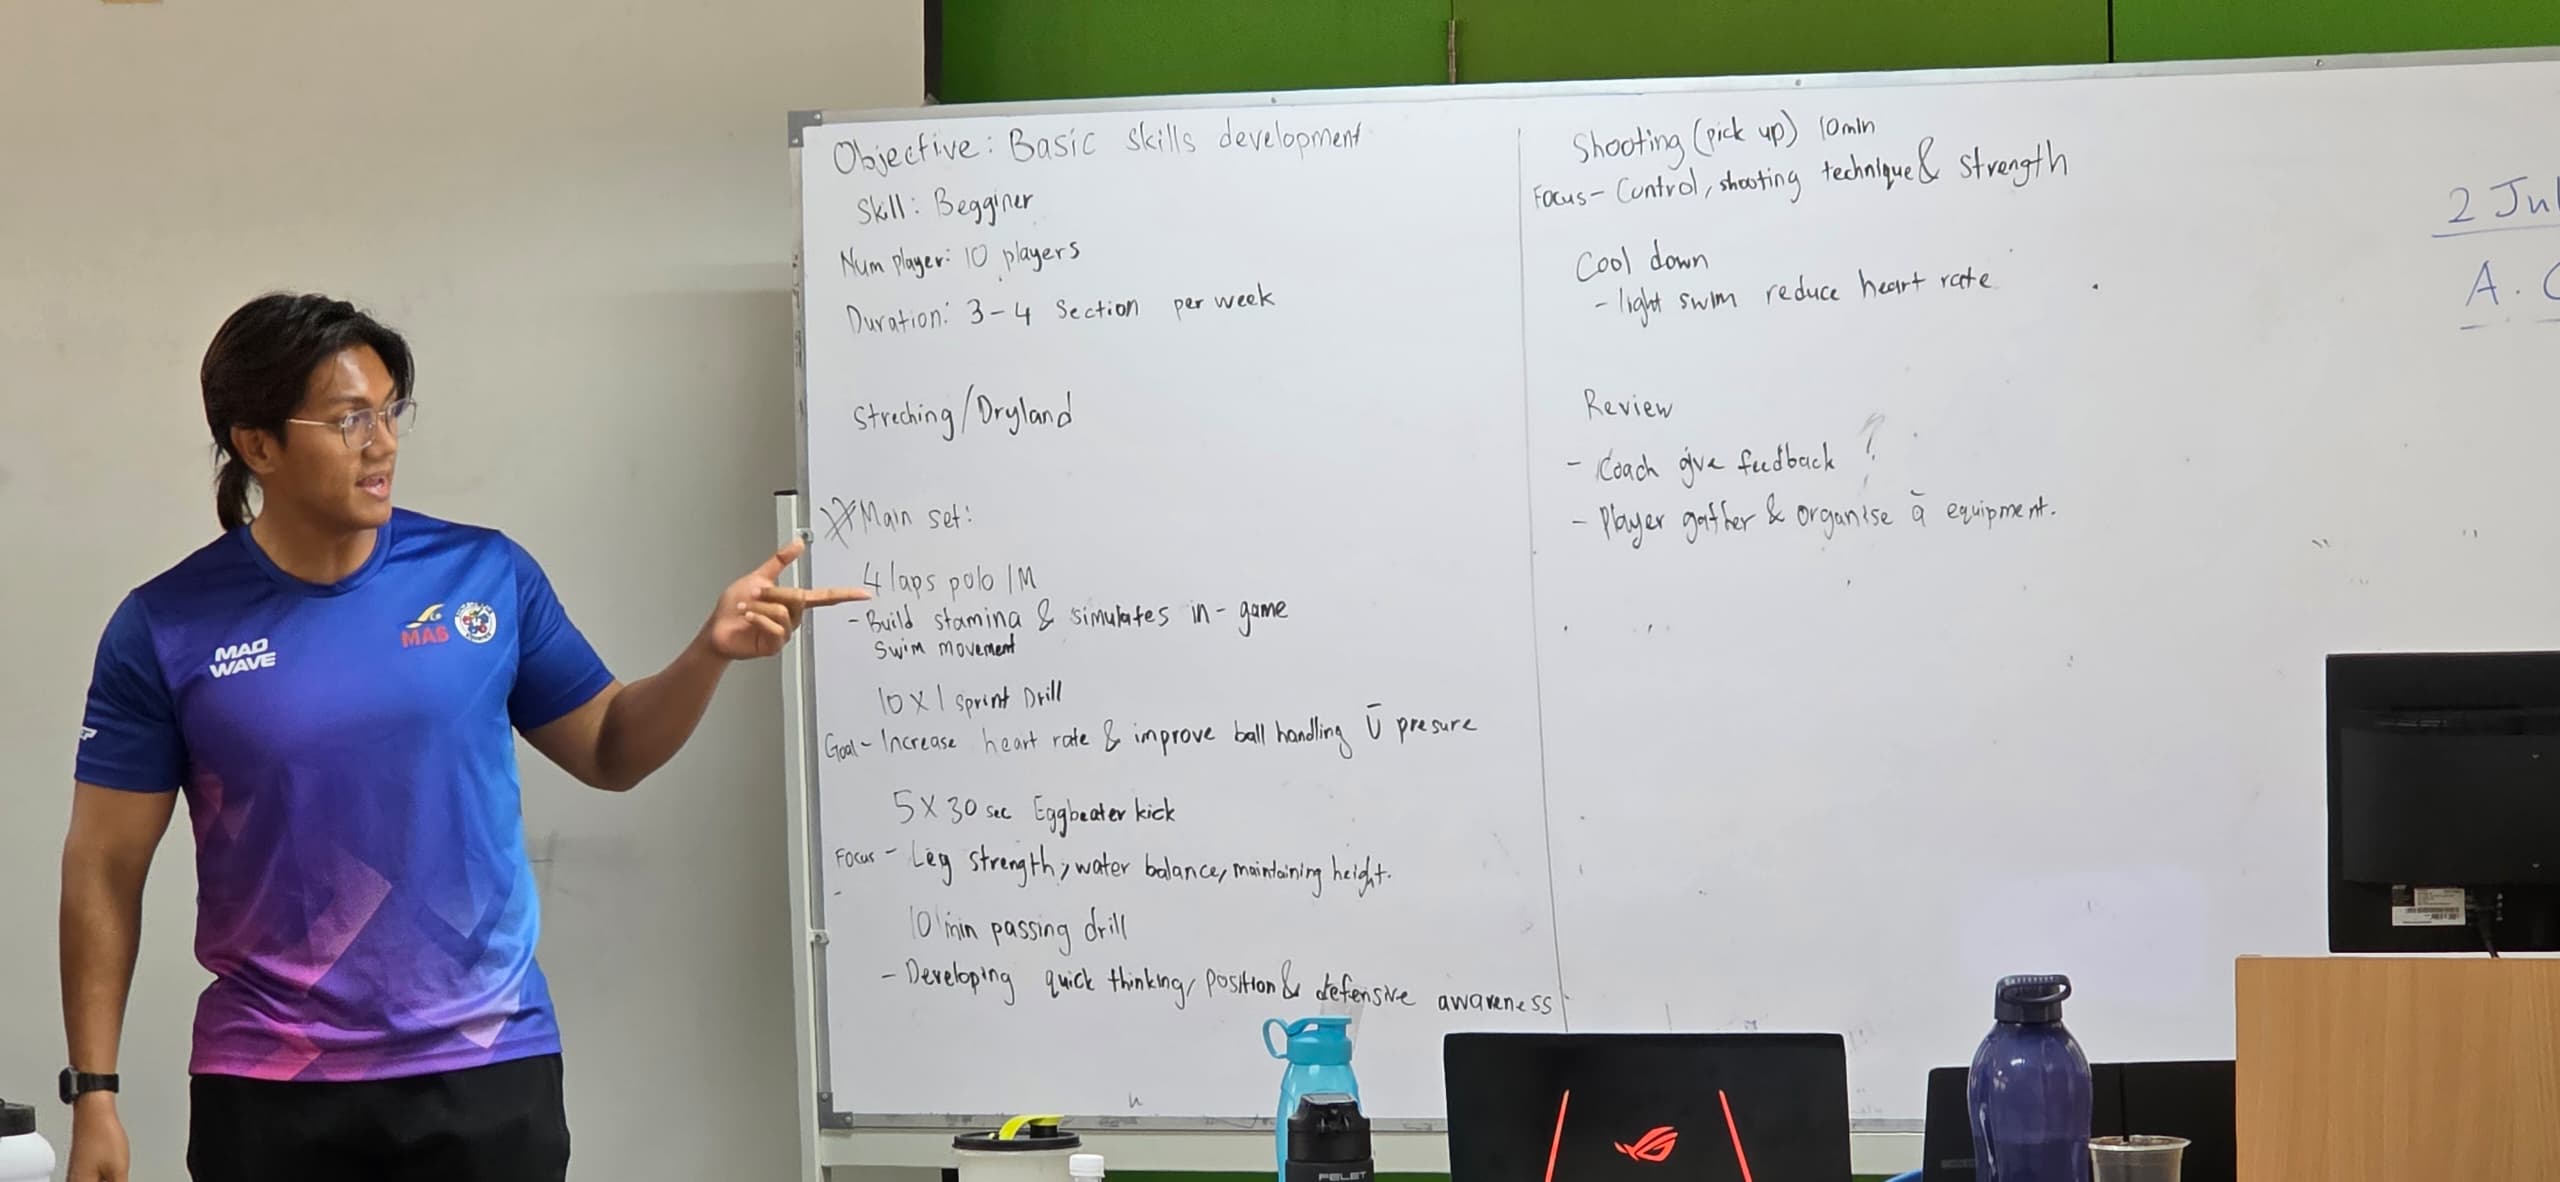 Objective: Basic skills development
Skill: Begginer
Num player: 10 players
Duration: 3-4 Section per week
Streching/Dryland
Main set:
4 laps polo IM
- Build stamina & simulates in-game
swim movement
10 x 1 sprint Drill
Goal - Increase heart rate & improve ball handling Ū presure
5 x 30 sec Eggbeater kick
Focus - Leg strength, water balance, maintaining height.
10 min passing drill
- Developing quick thinking, position & defensive awareness
Shooting (pick up) 10min
Focus - Control, shooting technique & strength
Cool down
- light swim reduce heart rate
Review
- Coach give feedback ?
- Player gather & organise ā equipment.
2 Jul
A.
MAD
WAVE
MAS
PELET